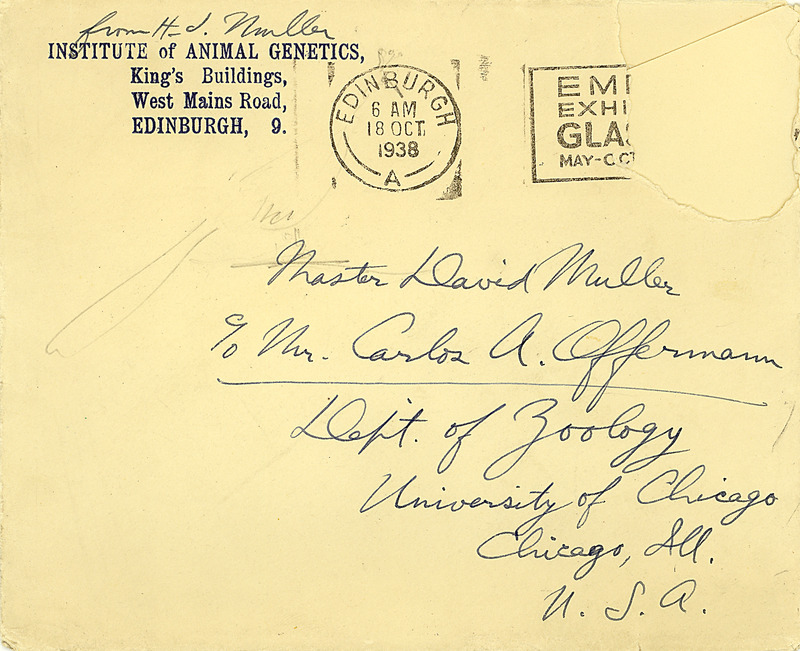 from H. J. Muller
INSTITUTE of ANIMAL GENETICS,
King's Buildings,
West Mains Road,
EDINBURGH, 9.
EDINBURGH
6 AM
18 OCT
1938
A
EMP
EXHI
GLAS
MAY-OCT
Master David Muller
c/o Mr. Carlos A. Offermann
Dept. of Zoology
University of Chicago
Chicago, Ill.
U. S. A.